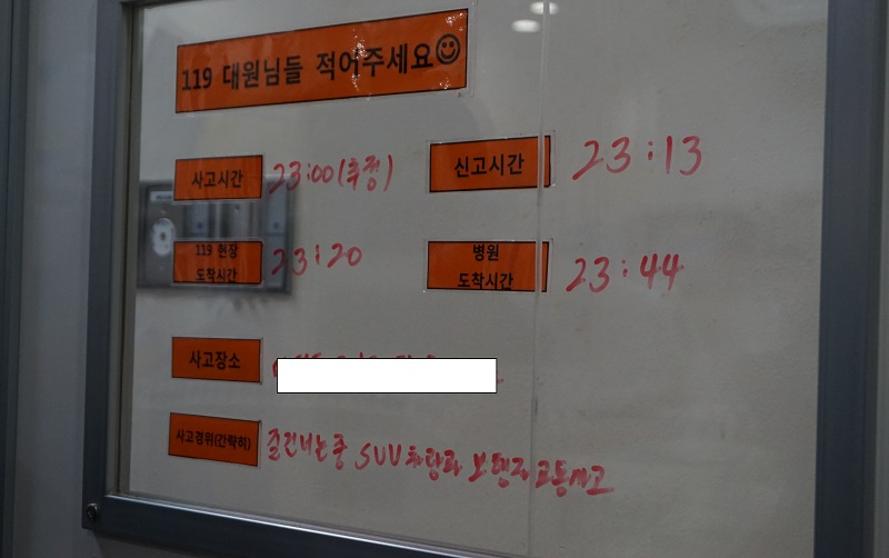 119 대원님들 적어주세요☺
사고시간 23:00(추정) 신고시간 23:13
119 현장
도착시간 23:20
병원
도착시간 23:44
사고장소
사고경위(간략히) 길건너는중 SUV차량과 보행자교통사고